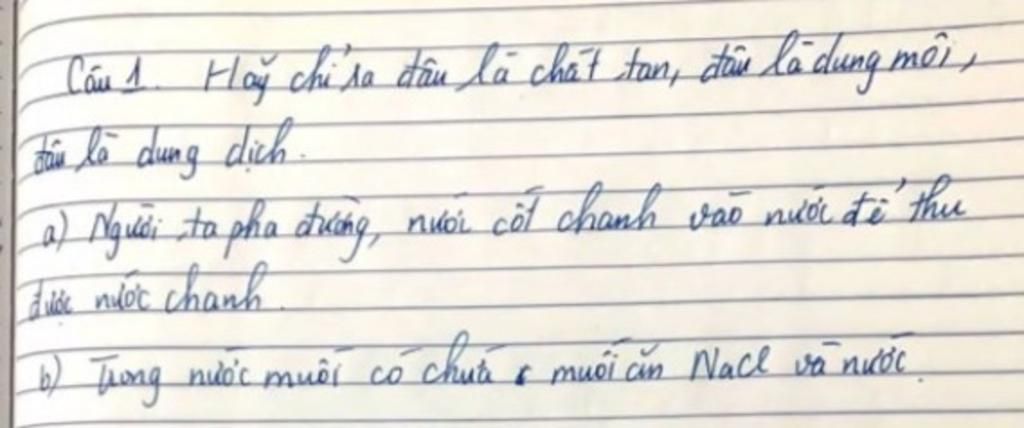 Câu 1. Hãy chỉ ra đâu là chất tan, đâu là dung môi,
đâu là dung dịch.
a) Người ta pha đường, nước cốt chanh vào nước để thu
được nước chanh.
b) Trong nước muối có chứa muối ăn NaCl và nước.